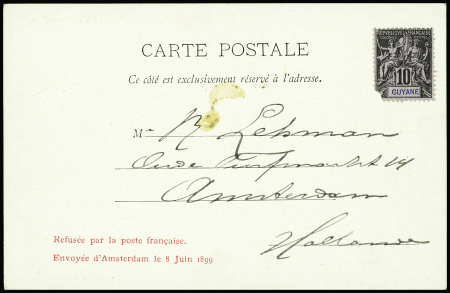 RÉPUBLIQUE FRANÇAISE
10
GUYANE
CARTE POSTALE
Ce côté est exclusivement réservé à l'adresse.
M r Lehman
Oude Turfmarkt 14
Amsterdam
Hollande
Refusée par la poste française.
Envoyée d'Amsterdam le 8 Juin 1899